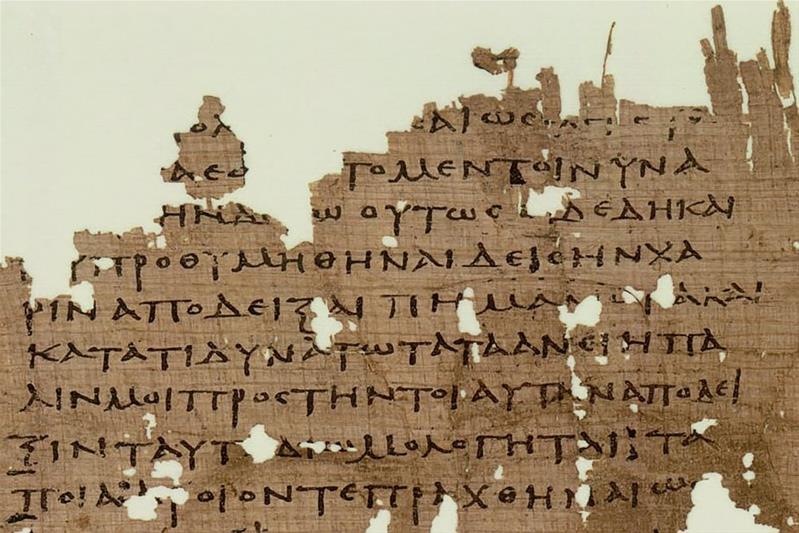 ΑΙΩϹ
ΛΕΟ ΤΟΜΕΝΤΟΙΝΥΝΑ
ΗΝΔ Ω ΟΥΤΩϹ ΔΕΔΗΚΑΙ
Υ ΠΡΟΘΥΜΗΘΗΝΑΙΔΕΙϹΗΝΧΑ
ΡΙΝΑΠΟΔΕΙΞΑΙΠΗΜΑΛ ΑΚΑΙ
ΚΑΤΑΤΙΔΥΝΑΤΩΤΑΤΑΑΝΕΙΗΠΑ
ΛΙΝΜΟΙΠΡΟϹΤΗΝΤΟΙΑΥΤΗΝΑΠΟΔΕΙ
ΞΙΝΤΑΥΤ ΔΙΟΜΟΛΟΓΗΤΑΙ:ΤΑ
ΠΟΙΑ:ΑΡΟΙΟΝΤΕΠΡΑΧΘΗΝΑΙΩϹ